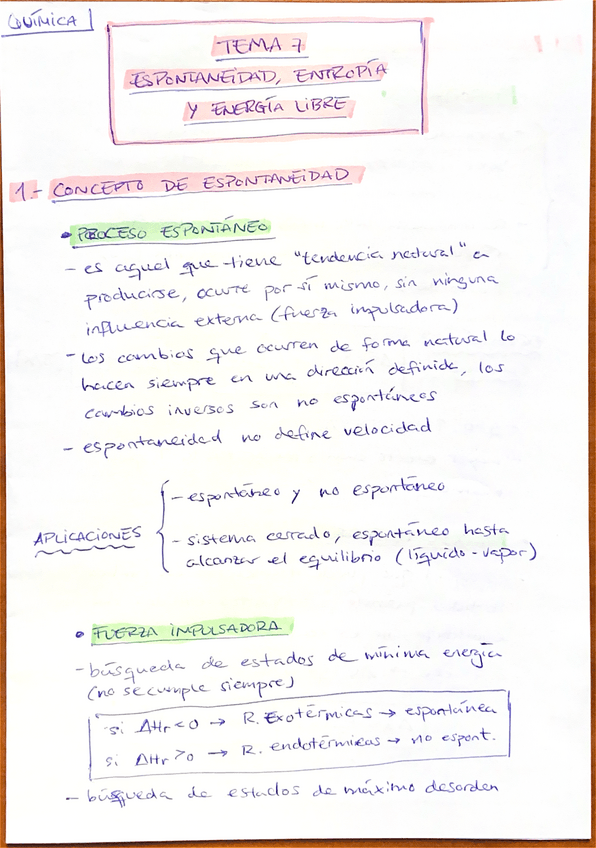 QUÍMICA
TEMA 7
ESPONTANEIDAD, ENTROPÍA
Y ENERGÍA LIBRE
1.- CONCEPTO DE ESPONTANEIDAD
• PROCESO ESPONTÁNEO
- es aquel que tiene "tendencia natural" a
producirse, ocurre por sí mismo, sin ninguna
influencia externa (fuerza impulsadora)
- los cambios que ocurren de forma natural lo
hacen siempre en una dirección definida, los
cambios inversos son no espontáneos
- espontaneidad no define velocidad
APLICACIONES
- espontáneo y no espontáneo
- sistema cerrado, espontáneo hasta
alcanzar el equilibrio (líquido-vapor)
• FUERZA IMPULSADORA
- búsqueda de estados de mínima energía
(no se cumple siempre)
si ΔHr < 0 → R. Exotérmicas → espontánea
si ΔHr > 0 → R. endotérmicas → no espont.
- búsqueda de estados de máximo desorden